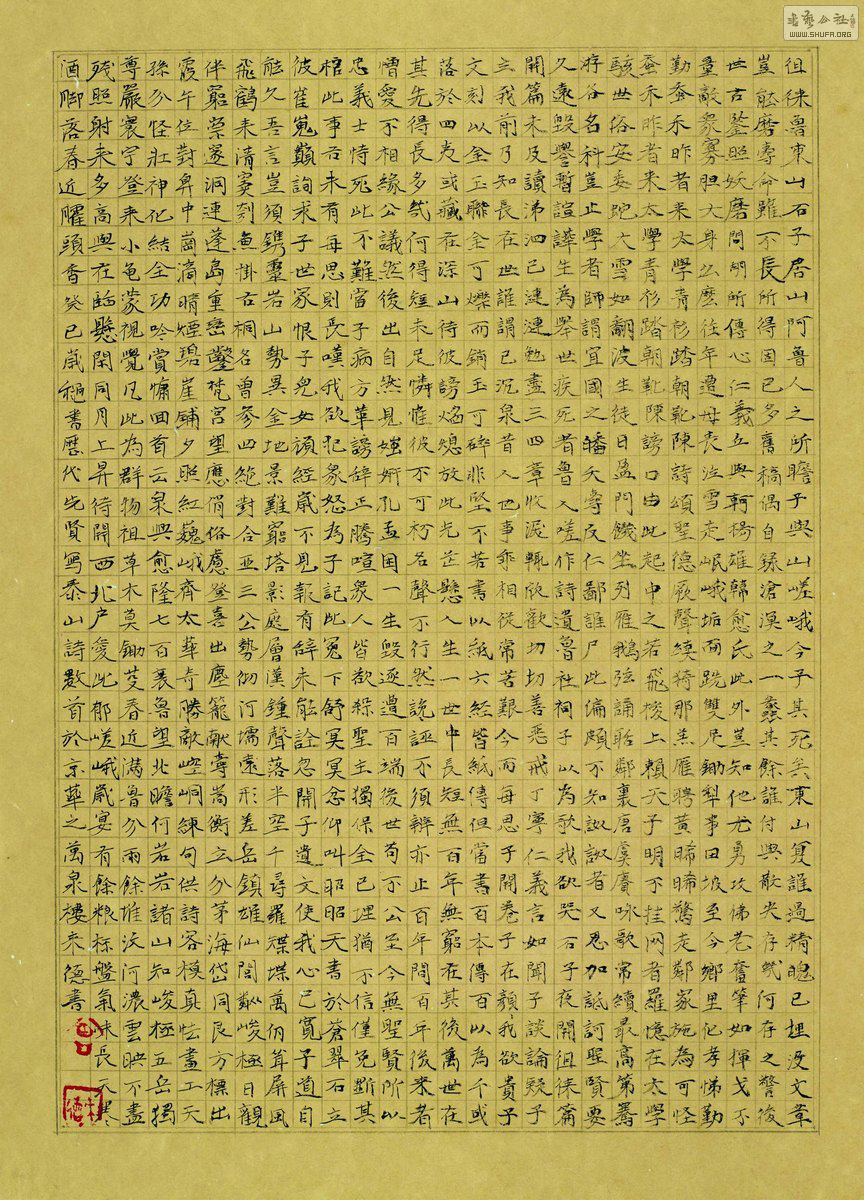 徂徕魯東山石子居山阿魯人之所瞻子與山嵯峨今子其死矣東山復誰過精魄已埋沒文章
豈能磨壽命雖不長所得固已多舊稿偶自錄滄溟之一蠡其餘誰付與散失存幾何存之警後
世古鑒照妖磨問胡所傳心仁義丘與軻楊雄韓愈氏此外豈知他尤勇攻佛老奮筆如揮戈不
量敵眾寡胆大身么麼往年遭母喪泣雪走岷峨垢面跣雙足鋤犁事田坡至今鄉里化孝悌勤
勤蚕禾昨者来太學青衫踏朝靴陳詩頌聖德厥聲續猗那羔雁聘黃晞晞驚走鄰家施為可怪
蚕禾昨者来太學青衫踏朝靴陳謗口由此起中之若飛梭上賴天子明不挂网者羅憶在太學
駭世俗安委蛇大雪如翻波生徒日盈門饑坐列雁鵝弦誦聒鄰裏唐虞賡咏歌常續最高第騫
游各名科豈止學者師謂宜國之皤夭壽反仁鄙誰尸此偏頗不知呶呶者又忍加詆訶聖賢要
久遠毀譽暫諠譁生為舉世疾死者魯人嗟作詩遺魯社祠子以為歌我欲哭石子夜開徂徕篇
開篇未及讀涕泗已漣漣勉盡三四章收淚輒欣歡切切善惡戒丁寧仁義言如聞子談論疑子
立我前乃知長在世誰謂已沉泉昔人也事乖相從常苦艱今而每思子開卷子在顏我欲貴子
文刻以金玉聯金可爍而銷玉可碎非堅不若書以紙六經皆紙傳但當書百本傳百以為千或
落於四夷或藏在深山待彼謗焰熄放此光芒懸人生一世中長短無百年無窮在其後萬世在
其先得長多幾何得短未足憐惟彼不可朽名聲不行然說誣不須辨亦止百年問百年後来者
憎愛不相緣公議然後出自然見媸妍孔孟困一生毀逐遭百端後世苟不公至今無聖賢所以
忠義士恃死此不難當子病方革謗辞正騰喧衆人皆欲殺聖主獨保全已埋猶不信僅免斵其
棺此事古未有每思則長嘆我欲犯眾怒為子記此冤下舒冥冥忿仰叫昭昭天書於蒼翠石立
彼崔嵬顛詢求子世家恨子兒女頑經歲不見報有辞未能詮忽開子遺文使我心已寬子道自
能久吾言豈須鐫羣岩山勢異金地景難窮塔影庭層漢鍾聲落半空千尋羅碟堞萬仞聳屏風
飛鶴来清宴刻魚掛古祠名曾參四絕對合亞三公勢仰汀濡遠形差岳鎮雄仙閭巘峻極日觀
伴窮崇邃洞連蓬島重巒鑿梵宮望應俏俗慮登喜出塵籠献壽嵩衡立分茅海岱同艮方標出
震午位對鼻中崮滴晴煙碧崖鋪夕照紅巍峨齊太華奇勝敵崆峒練句供詩客模真怯畫工天
孫分怪壯神化結全功吟賞慵回首云泉興愈隆七百裏魯望北瞻何岩岩諸山知峻極五岳獨
尊嚴寰宇登来小龜蒙視覺凡此為群物祖草木莫鋤芟春近滿魯分雨餘堆汶河濃雲映不盡
殘照射来多高興在臨懸開同月上昇待開西北户愛此郁嵯峨歲宴有餘粮粽盤氣味長天寒
酒脚落春近臘頭香癸巳歲穐書歷代先賢寫泰山詩數首於京華之萬泉樓来德書
書藝公社
WWW.SHUFA.ORG